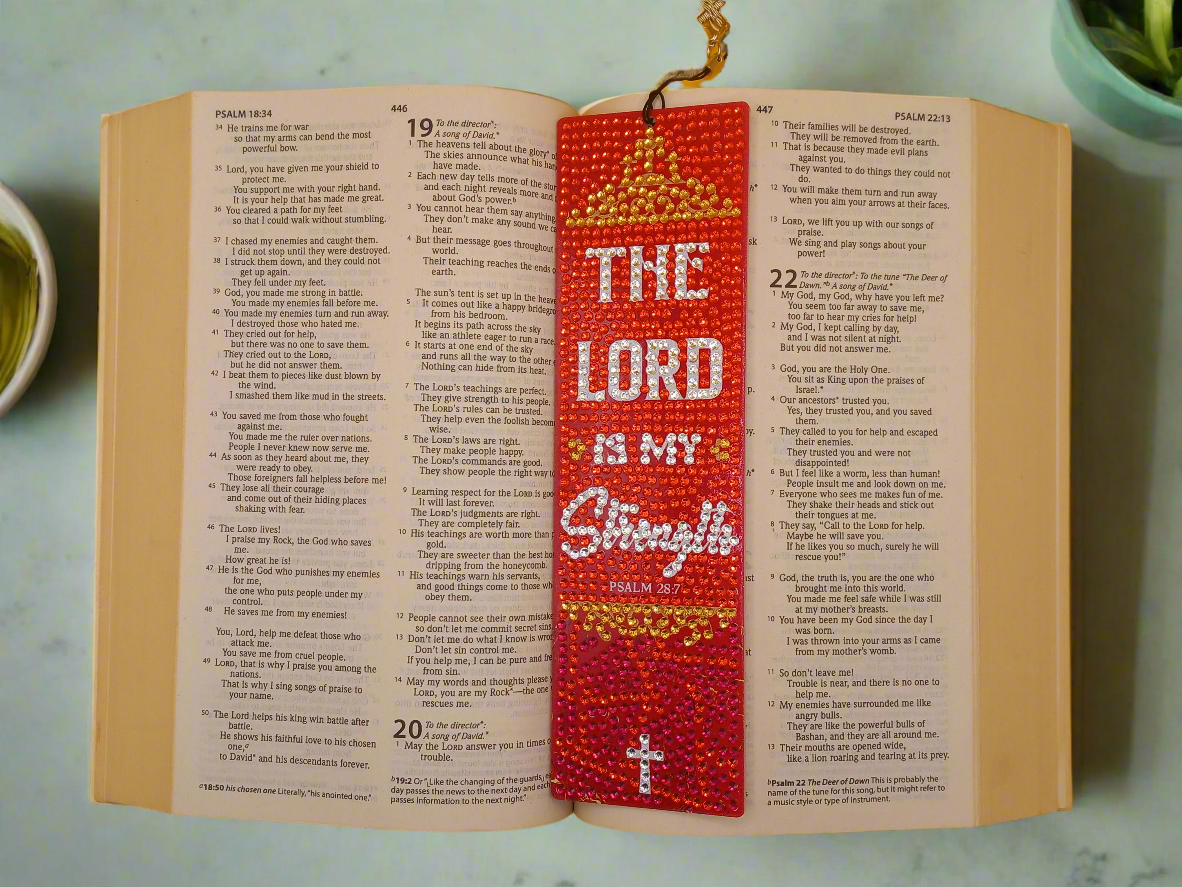 PSALM 18:34
34 He trains me for war
so that my arms can bend the most
powerful bow.
35 Lord, you have given me your shield to
protect me.
You support me with your right hand.
It is your help that has made me great.
36 You cleared a path for my feet
so that I could walk without stumbling.
37 I chased my enemies and caught them.
I did not stop until they were destroyed.
38 I struck them down, and they could not
get up again.
They fell under my feet.
39 God, you made me strong in battle.
You made my enemies fall before me.
40 You made my enemies turn and run away.
I destroyed those who hated me.
41 They cried out for help,
but there was no one to save them.
They cried out to the LORD,
but he did not answer them.
42 I beat them to pieces like dust blown by
the wind.
I smashed them like mud in the streets.
43 You saved me from those who fought
against me.
You made me the ruler over nations.
People I never knew now serve me.
44 As soon as they heard about me, they
were ready to obey.
Those foreigners fall helpless before me!
45 They lose all their courage
and come out of their hiding places
shaking with fear.
46 The LORD lives!
I praise my Rock, the God who saves
me.
How great he is!
47 He is the God who punishes my enemies
for me,
the one who puts people under my
control.
48 He saves me from my enemies!
You, Lord, help me defeat those who
attack me.
You save me from cruel people.
49 LORD, that is why I praise you among the
nations.
That is why I sing songs of praise to
your name.
50 The Lord helps his king win battle after
battle.
He shows his faithful love to his chosen
one,a
to David* and his descendants forever.
a18:50 his chosen one Literally, "his anointed one."
446
19 To the director*:
A song of David.*
1 The heavens tell about the glory*
The skies announce what his
have made.
2 Each new day tells more of the
and each night reveals more and
about God's power.b
3 You cannot hear them say anything
They don't make any sound we
hear.
4 But their message goes throughout
world.
Their teaching reaches the ends
earth.
The sun's tent is set up in the
5 It comes out like a happy
from his bedroom.
It begins its path across the sky
like an athlete eager to run a race.
6 It starts at one end of the sky
and runs all the way to the other
Nothing can hide from its heat.
7 The LORD's teachings are perfect.
They give strength to his people.
The LORD's rules can be trusted.
They help even the foolish
wise.
8 The LORD's laws are right.
They make people happy.
The LORD's commands are good.
They show people the right way
9 Learning respect for the LORD is
It will last forever.
The LORD's judgments are right.
They are completely fair.
10 His teachings are worth more than
gold.
They are sweeter than the best
dripping from the honeycomb.
11 His teachings warn his servants,
and good things come to those
obey them.
12 People cannot see their own
so don't let me commit secret sins.
13 Don't let me do what I know is
Don't let sin control me.
If you help me, I can be pure and
from sin.
14 May my words and thoughts please
LORD, you are my Rock*—the one
rescues me.
20 To the director*:
A song of David.*
1 May the LORD answer you in times
trouble.
b19:2 Or "Like the changing of the guards,
day passes the news to the next day and each
passes information to the next night."
THE
LORD
IS MY
Strength
PSALM 28:7
447
PSALM 22:13
10 Their families will be destroyed.
They will be removed from the earth.
11 That is because they made evil plans
against you.
They wanted to do things they could not
do.
12 You will make them turn and run away
when you aim your arrows at their faces.
13 LORD, we lift you up with our songs of
praise.
We sing and play songs about your
power!
22 To the director*: To the tune "The Deer of
Dawn."b A song of David.*
1 My God, my God, why have you left me?
You seem too far away to save me,
too far to hear my cries for help!
2 My God, I kept calling by day,
and I was not silent at night.
But you did not answer me.
3 God, you are the Holy One.
You sit as King upon the praises of
Israel.*
4 Our ancestors* trusted you.
Yes, they trusted you, and you saved
them.
5 They called to you for help and escaped
their enemies.
They trusted you and were not
disappointed!
6 But I feel like a worm, less than human!
People insult me and look down on me.
7 Everyone who sees me makes fun of me.
They shake their heads and stick out
their tongues at me.
8 They say, "Call to the LORD for help.
Maybe he will save you.
If he likes you so much, surely he will
rescue you!"
9 God, the truth is, you are the one who
brought me into this world.
You made me feel safe while I was still
at my mother's breasts.
10 You have been my God since the day I
was born.
I was thrown into your arms as I came
from my mother's womb.
11 So don't leave me!
Trouble is near, and there is no one to
help me.
12 My enemies have surrounded me like
angry bulls.
They are like the powerful bulls of
Bashan, and they are all around me.
13 Their mouths are opened wide,
like a lion roaring and tearing at its prey.
bPsalm 22 The Deer of Dawn This is probably the
name of the tune for this song, but it might refer to
a music style or type of instrument.